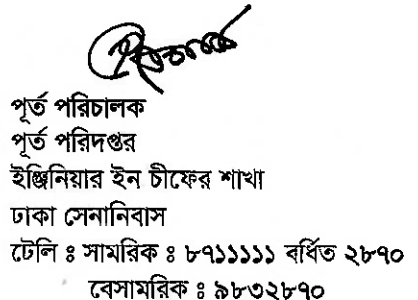 পূর্ত পরিচালক
পূর্ত পরিদপ্তর
ইঞ্জিনিয়ার ইন চীফের শাখা
ঢাকা সেনানিবাস
টেলি ঃ সামরিক ঃ ৮৭১১১১১ বর্ধিত ২৮৭০
বেসামরিক ঃ ৯৮৩২৮৭০